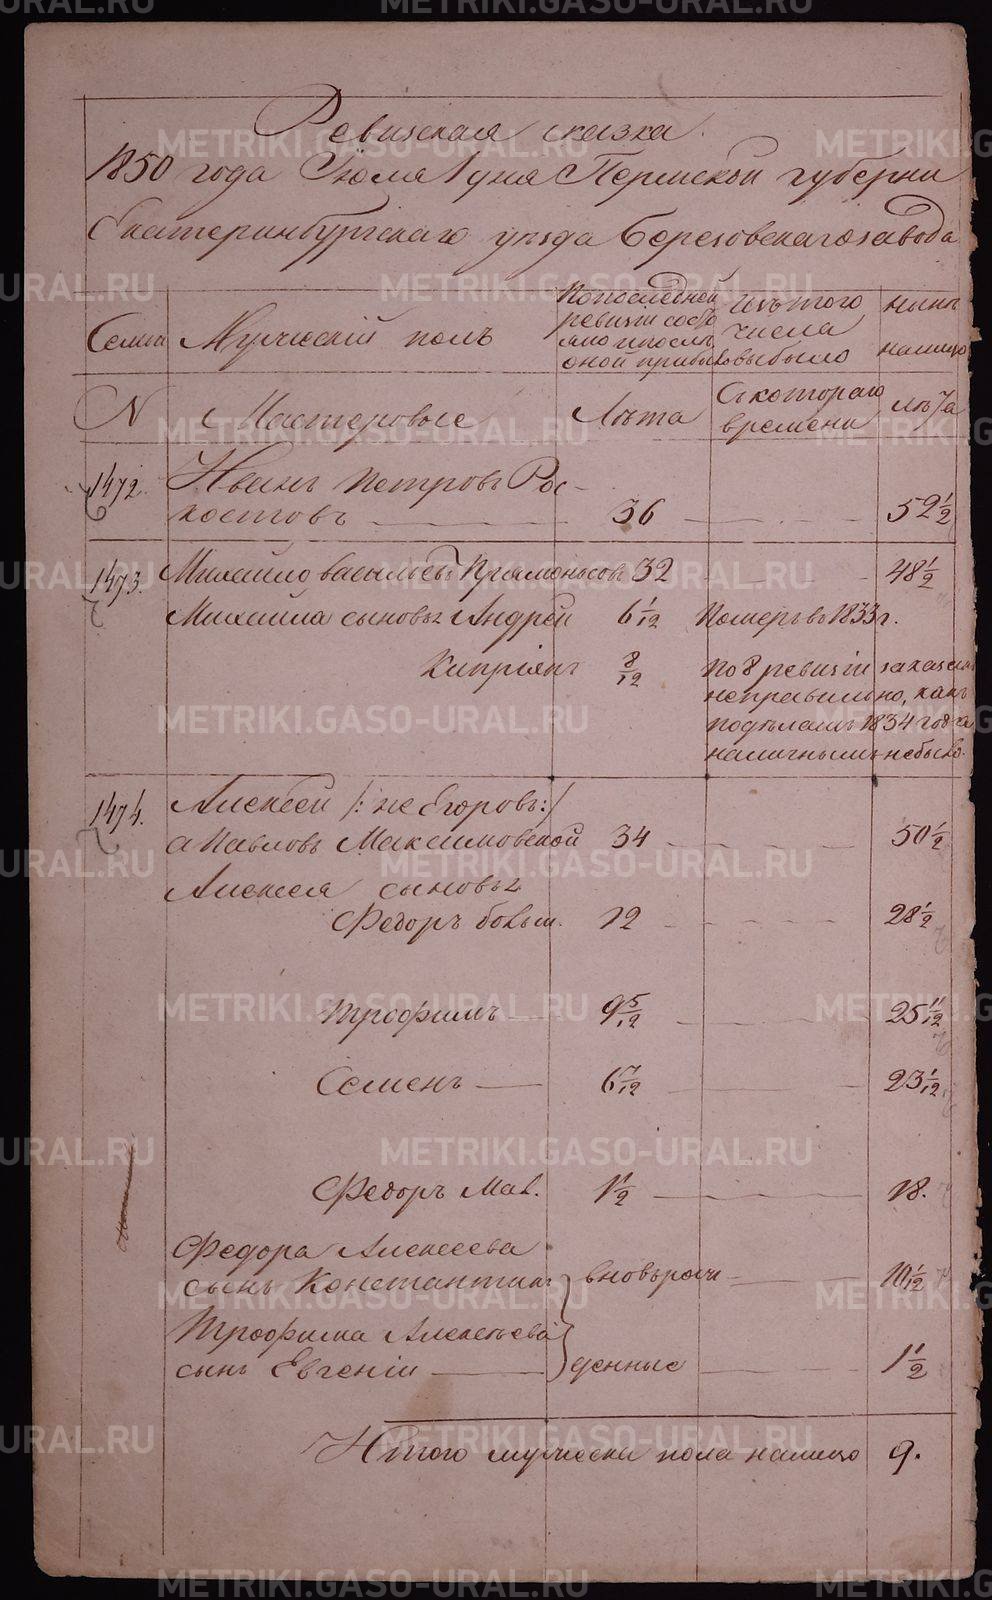 Ревизская сказка.
1850 года Июля 1 дня Пермской губернии
Екатеринбургскаго уезда Березовскагозавода
Семьи Мужескiй полъ По последней ревизiи состояло и после оной прибыло Изъ того числа выбыло Ныне налицо
N Мастеровые Лета С котораго времени Лета
1472. Иванъ Петровъ Рос-
хостовъ 36 52 1/2
1473. Михаило Васильевъ Прямоносовъ 32 48 1/2
Михаила сыновья Андрей 6 1/12 Померъ въ 1833 г.
Кипрiянъ 8/12 По 8 ревизiи
неправильно, какъ
поделамъ 1834 года
наличнымъ небыло.
1474. Алексей /: не Егоровъ :/
а Павловъ Максимовской 34 50 1/2
Алексея сыновья
Федоръ больш. 12 28 1/2
Трофимъ 9 5/12 25 11/12
Семенъ 6 7/12 23 1/12
Федоръ Мал. 1 1/2 18.
Федора Алексеева
сынъ Константинъ вновьрож 10 1/12
Трофима Алексеева
сынъ Евгенiй денные 1 1/2
Итого мужеска пола налицо 9.
METRIKI.GASO-URAL.RU